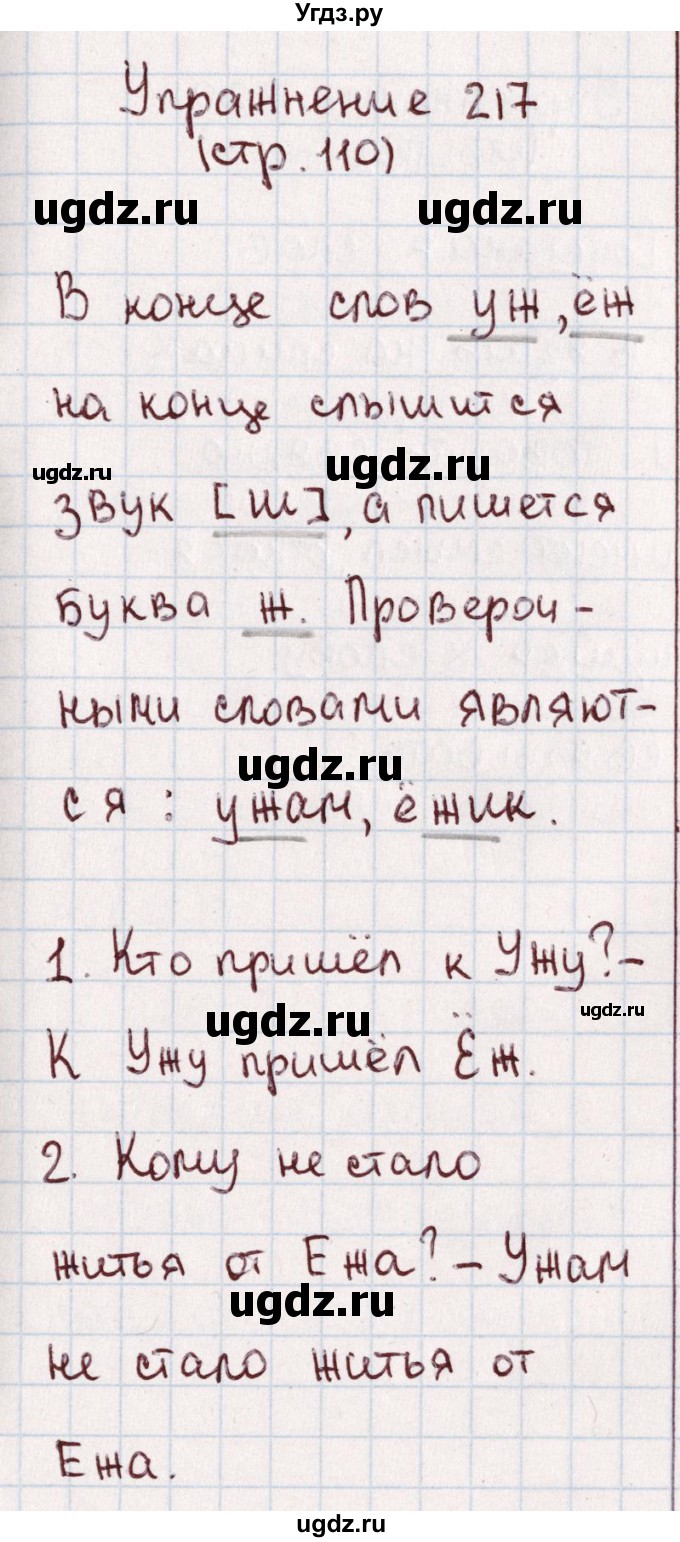 Угдз.ру
Упражнение 217
(стр. 110)
ugdz.ru ugdz.ru
В конце слов уж, ёж
на конце слышится
ugdz.ru ugdz.ru
звук [ш], а пишется
буква ж. Провероч-
ными словами являют-
ugdz.ru
ся: ужам, ёжик.
1. Кто пришёл к Ужу? -
ugdz.ru ugdz.ru
К Ужу пришёл Ёж.
2. Кому не стало
житья от Ежа? - Ужам
ugdz.ru
не стало житья от
Ежа.
ugdz.ru